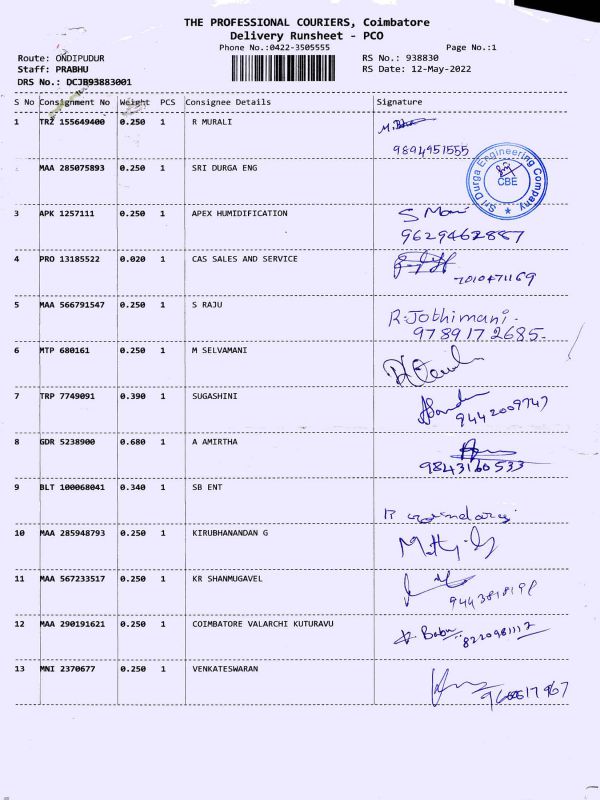 THE PROFESSIONAL COURIERS, Coimbatore
Delivery Runsheet - PCO
Phone No.:0422-3505555
Page No.:1
Route: ONDIPUDUR
RS No.: 938830
Staff: PRABHU
RS Date: 12-May-2022
DRS No.: DCJB93883001
S No Consignment No Weight PCS Consignee Details Signature
1 TRZ 155649400 0.250 1 R MURALI
9894951555
MAA 285075893 0.250 1 SRI DURGA ENG
Sri Durga Engineering Company
CBE
3 APK 1257111 0.250 1 APEX HUMIDIFICATION S Mani
9629462887
4 PRO 13185522 0.020 1 CAS SALES AND SERVICE
7010471169
5 MAA 566791547 0.250 1 S RAJU
R.Jothimani.
9789172685.
6 MTP 680161 0.250 1 M SELVAMANI
7 TRP 7749091 0.390 1 SUGASHINI
9442009747
8 GDR 5238900 0.680 1 A AMIRTHA
9843160533
9 BLT 100068041 0.340 1 SB ENT
10 MAA 285948793 0.250 1 KIRUBHANANDAN G
11 MAA 567233517 0.250 1 KR SHANMUGAVEL
12 MAA 290191621 0.250 1 COIMBATORE VALARCHI KUTURAVU
Babu
8220981117
13 MNI 2370677 0.250 1 VENKATESWARAN